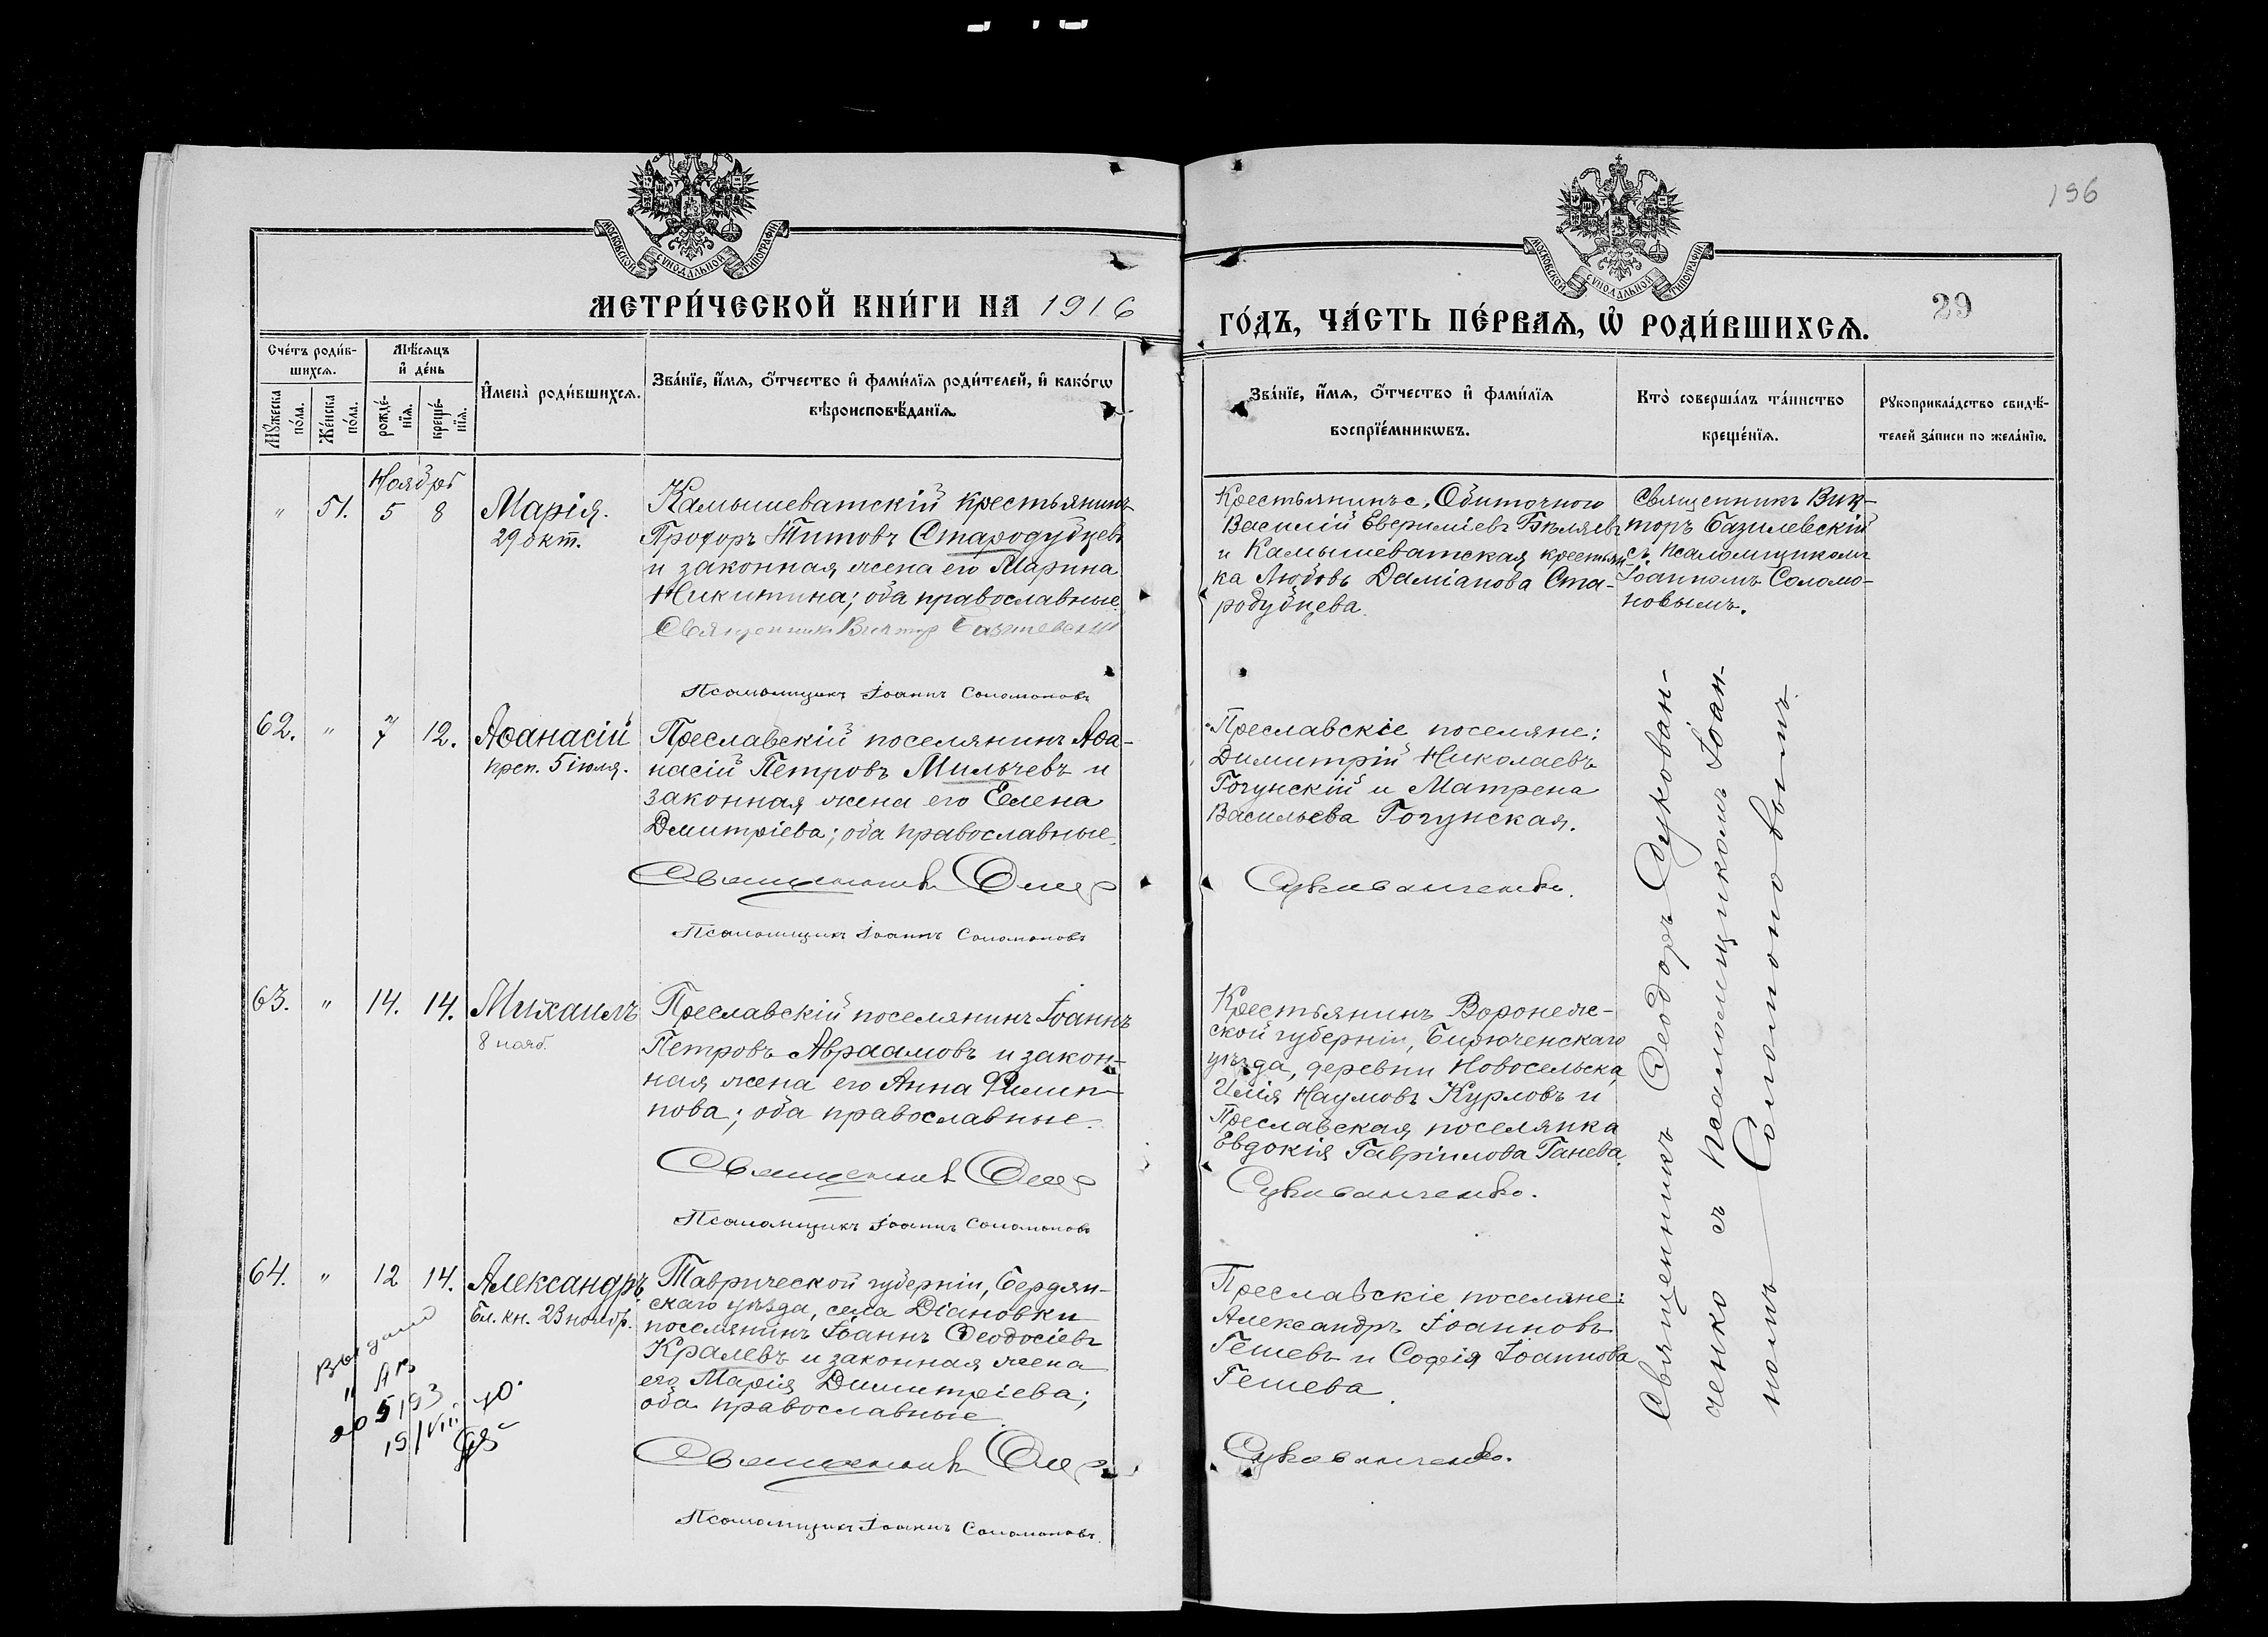 196
МОСКОВСКОЙ СѴНОДАЛЬНОЙ ТИПОГРАФІИ
МОСКОВСКОЙ СѴНОДАЛЬНОЙ ТИПОГРАФІИ
МЕТРИ́ЧЕСКОЙ КНИ́ГИ НА 1916
ГО́ДЪ, ЧА́СТЬ ПЕ́РВАѦ, Ѡ҆ РОДИ́ВШИХСѦ.
29
Сче́тъ роди́в-
шихсѧ.
Мѣ́сѧцъ
и҆ де́нь
Мꙋ́жеска
по́ла.
Же́нска
по́ла.
рожде́-
нїѧ.
креще́-
нїѧ.
И҆мена̀ роди́вшихсѧ.
Зва́нїе, и҆́мѧ, ѻ҆́тчество и҆ фами́лїѧ роди́телей, и҆ како́гѡ
вѣроисповѣ́данїѧ.
Зва́нїе, и҆́мѧ, ѻ҆́тчество и҆ фами́лїѧ
воспрїе́мникѡвъ.
Кто̀ соверша́лъ та́инство
креще́нїѧ.
Рꙋкоприкла́дство свидѣ́-
телей за́писи по жела́нїю.
Ноябрь
" 51. 5 8
Марія.
29 окт.
Камышеватскій крестьянинъ
Прохоръ Титовъ Стародубцевъ
и законная жена его Марина
Никитина; оба православные.
Священникъ Викторъ Базилевскій
Псаломщикъ Іоаннъ Соломоновъ
Крестьянинъ с. Обиточнаго
Василій Евфиміевъ Бѣляевъ
и Камышеватская крестьян-
ка Любовь Даміанова Ста-
родубцева.
Священникъ Вик-
торъ Базилевскій
съ псаломщикомъ
Іоанномъ Соломо-
новымъ.
62. " 7 12.
Аѳанасій
преп. 5 іюля.
Преславскій поселянинъ Аѳа-
насій Петровъ Мильчевъ и
законная жена его Елена
Дмитріева; оба православные.
Священникъ Ѳеод
Псаломщикъ Іоаннъ Соломоновъ
Преславскіе поселяне:
Димитрій Николаевъ
Гогунскій и Матрена
Васильева Гогунская.
Сукованченко.
Священникъ Ѳеодоръ Сукован-
ченко съ псаломщикомъ Іоан-
номъ Соломоновымъ.
63. " 14. 14.
Михаилъ
8 нояб.
Преславскій поселянинъ Іоаннъ
Петровъ Авраамовъ и закон-
ная жена его Анна Филип-
пова; оба православные.
Священникъ Ѳеод
Псаломщикъ Іоаннъ Соломоновъ
Крестьянинъ Воронеж-
ской губерніи, Бирюченскаго
уѣзда, деревни Новосельска
Илія Наумовъ Курловъ и
Преславская поселянка
Евдокія Гавріилова Танева.
Сукованченко.
64. " 12 14.
Александръ
Бл. кн. 23 нояб.
Таврической губерніи, Бердян-
скаго уѣзда, села Діановки
поселянинъ Іоаннъ Ѳеодосіевъ
Кралевъ и законная жена
его Марія Димитріева;
оба православные.
Священникъ Ѳеод
Псаломщикъ Іоаннъ Соломоновъ.
Преславскіе поселяне:
Александръ Іоанновъ
Гешевъ и Софія Іоаннова
Гешева.
Сукованченко.
Выдано
19/VIII